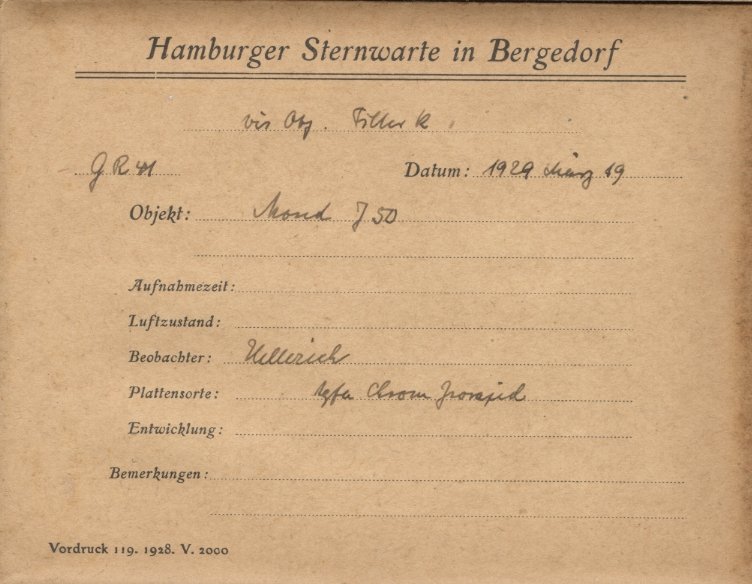 Hamburger Sternwarte in Bergedorf
vis Obj. Filter k
GR 41 Datum: 1929 März 19
Objekt: Mond J 50
Aufnahmezeit:
Luftzustand:
Beobachter: Hellerich
Plattensorte: Agfa Chrom Isorapid
Entwicklung:
Bemerkungen:
Vordruck 119. 1928. V. 2000